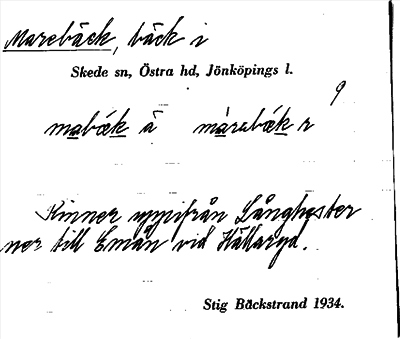 Marebäck, bäck i
Skede sn, Östra hd, Jönköpings l.
9
mabäk å märabäk r
Rinner uppifrån Långhester
ner till Emån vid Hällaryd.
Stig Bäckstrand 1934.